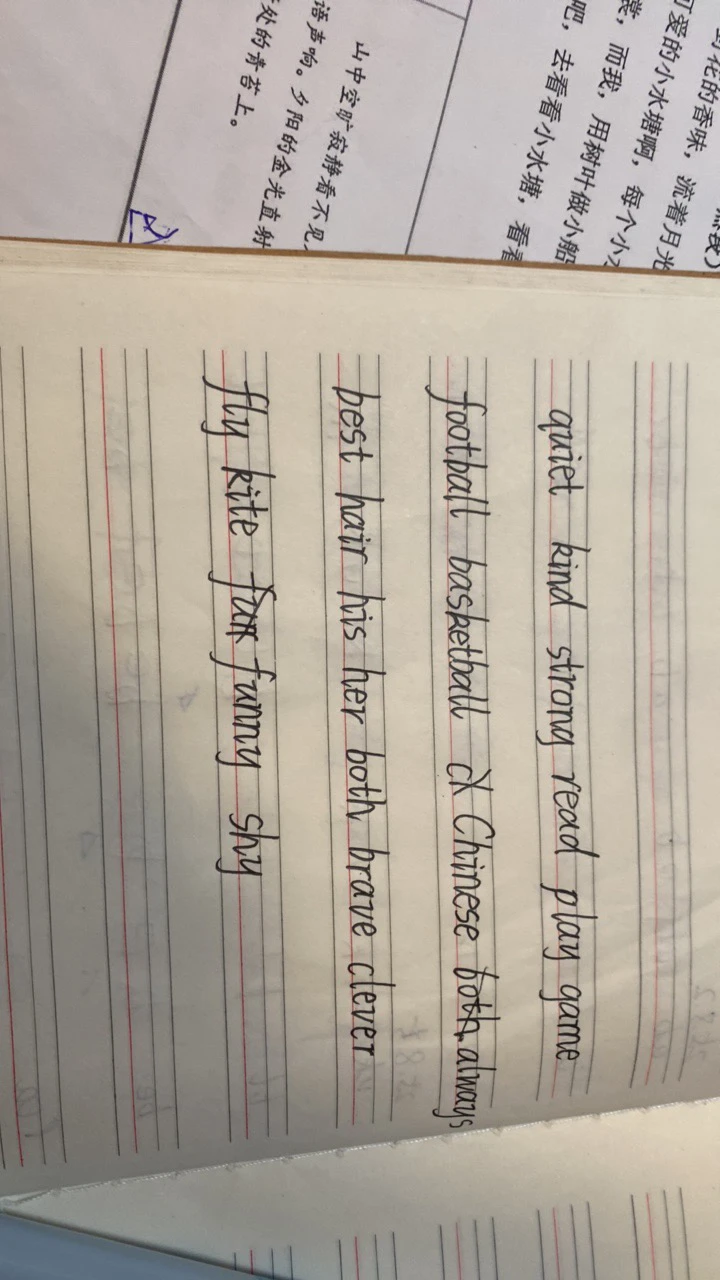 花的香味，流着月光
可爱的小水塘啊，每个小
而我，用树叶做小船
吧，去看看小水塘，看看
山中空旷寂静看不见
语声响。夕阳的金光直射
处的青苔上。
quiet kind strong read play game
football basketball Chinese both always
best hair his her both brave clever
fly kite funny shy